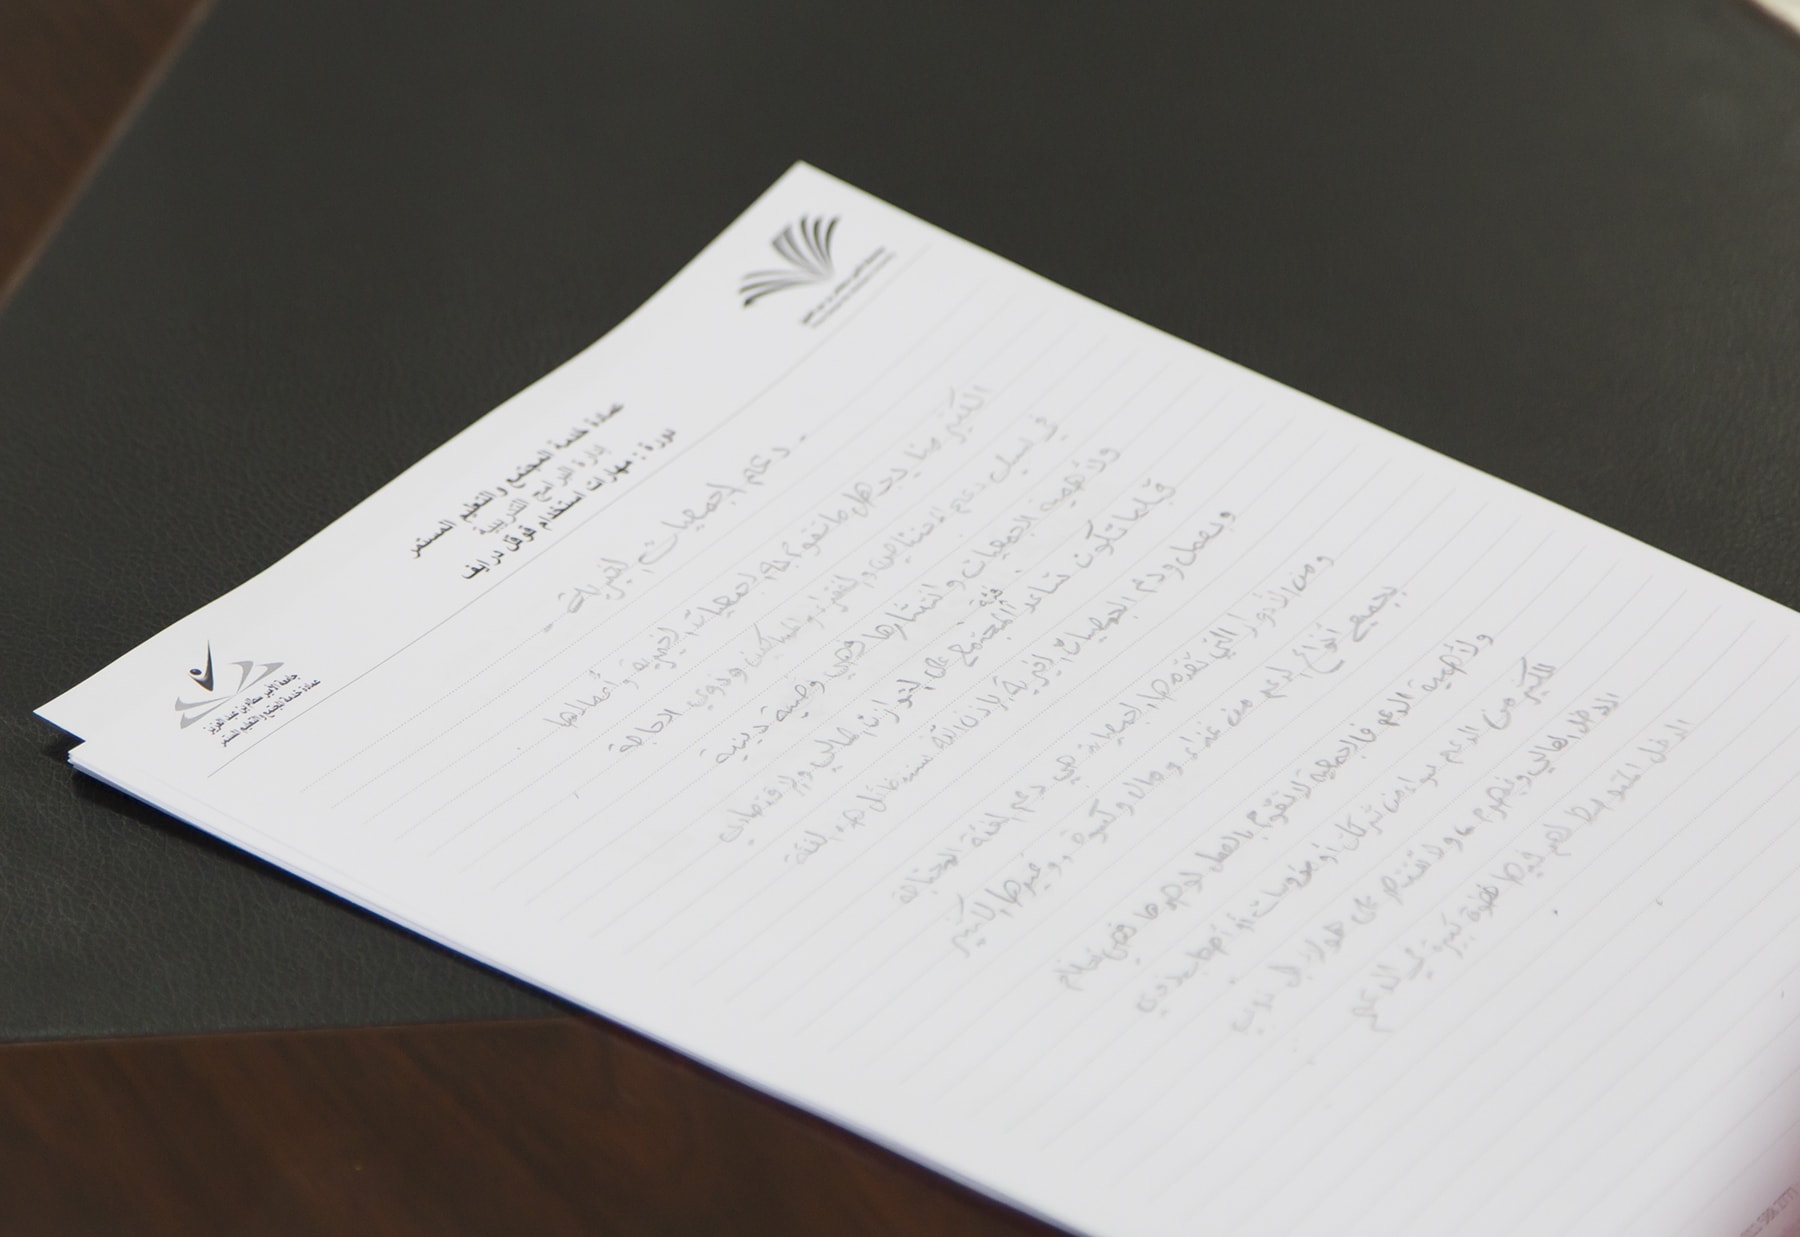 عمادة خدمة المجتمع والتعليم المستمر
إدارة البرامج التدريبية
دورة : مهارات استخدام قوقل درايف
جامعة الأمير سطام بن عبد العزيز
عمادة خدمة المجتمع والتعليم المستمر
- دعم الجمعيات الخيرية -
الكثير منا يجهل ما تقوم به الجمعيات الخيرية وأعمالها
في سبيل دعم المحتاجين والفقراء والمساكين وذوي الحاجة
ولأهمية الجمعيات وانتشارها وهي وصية دينية
قبلما تكون تساعد فئة المجتمع على التوازن المالي والاقتصادي
وبعمل ودعم الجمعيات الخيرية بإذن الله ستتضائل هذه الفئة
ومن الأدوار التي تقدمها الجمعيات هي دعم الفئة المحتاجة
بجميع أنواع الدعم من غذاء ومال وكسوة، وغيرها الكثير
ولأهمية الدعم في الجمعية لا تقوم بالعمل لوحدها فهي تحتاج
الكثير من الدعم سواء من شركات أو مؤسسات أو أصحاب ذوي
الدخل العالي وغيرهم، ولا تقتصر على هؤلاء بل ذوي
الدخل المتوسط لهم أيضا قدرة كبيرة في الدعم